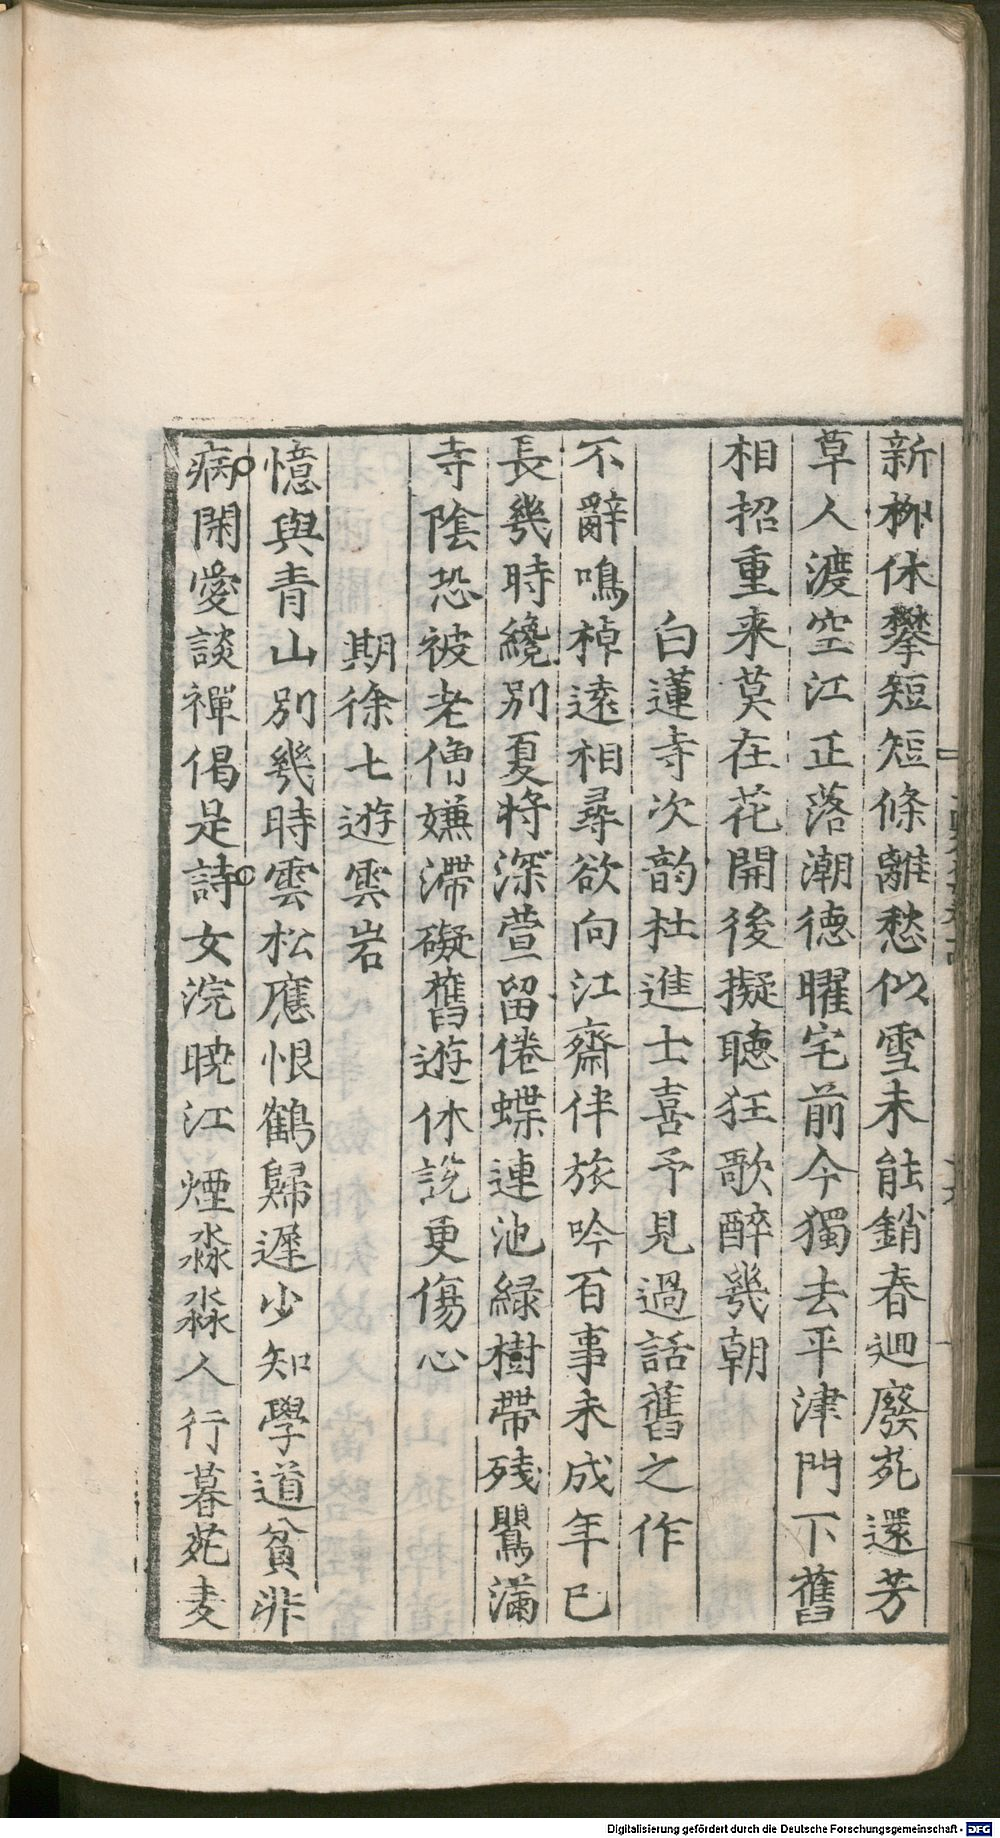 新栁休攀短短條離愁似雪未能銷春迴廢苑還芳
草人渡空江正落潮德曜宅前今獨去平津門下舊
相招重来莫在花開後擬聴狂歌醉幾朝
白蓮寺次韵杜進士喜予見過話舊之作
不辭鳴棹遠相尋欲向江齋伴旅吟百事未成年已
長幾時纔別夏将深萱留倦蝶連池緑樹帶残鸎滿
寺陰恐被老僧嫌滯礙舊遊休説更傷心
期徐七遊雲岩
憶與青山別幾時雲松應恨鶴歸遲少知學道貧非
病閑愛談禪偈是詩女浣暁江煙淼淼人行暮苑麦
Digitalisierung gefördert durch die Deutsche Forschungsgemeinschaft - DFG